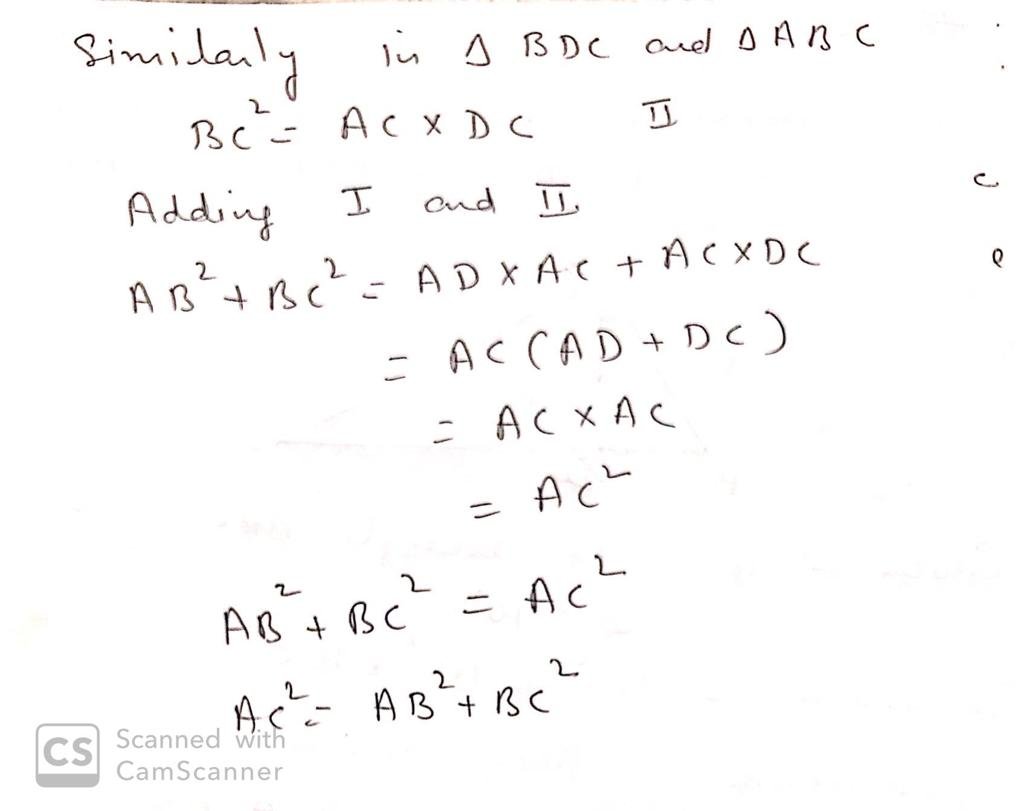 Similarly in Δ BDC and Δ ABC
BC² = AC × DC II
Adding I and II
AB² + BC² = AD × AC + AC × DC
= AC (AD + DC)
= AC × AC
= AC²
AB² + BC² = AC²
AC² = AB² + BC²
CS Scanned with
CamScanner